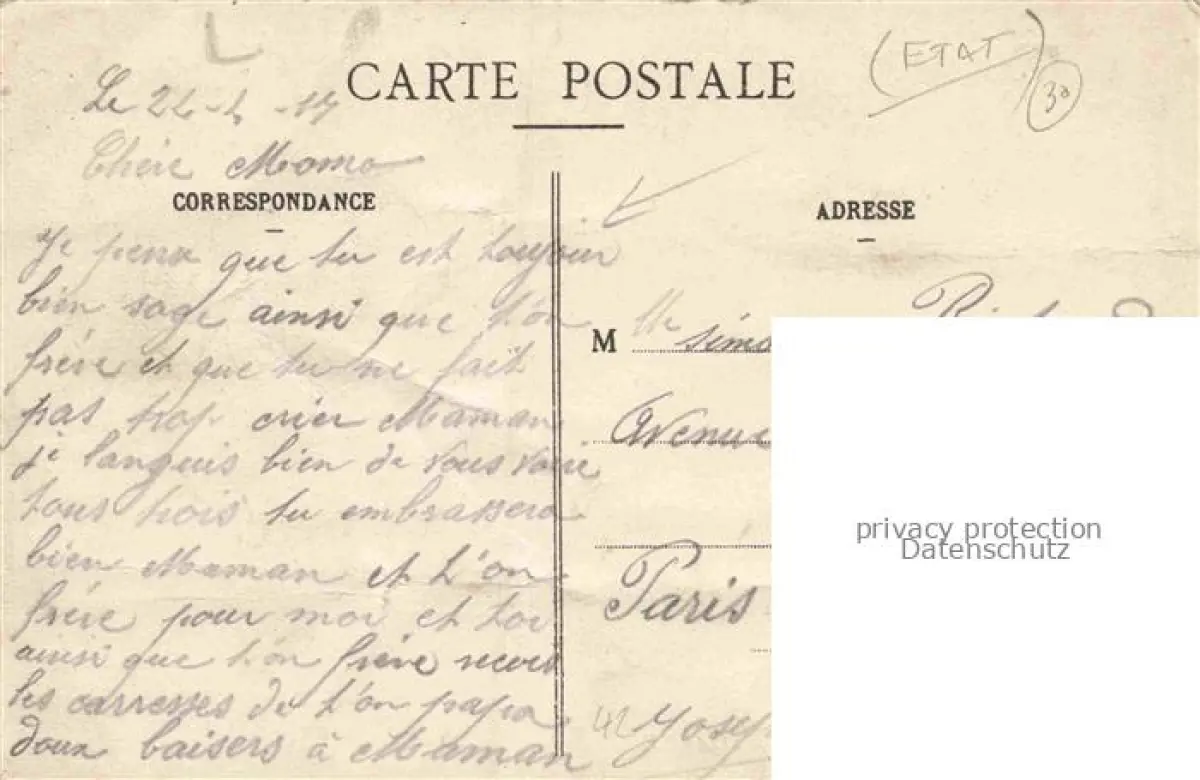 (ETAT)
30
CARTE POSTALE
Le 22-4-17
Chère Momo
CORRESPONDANCE
ADRESSE
Je pense que tu est toujour
bien sage ainsi que t'on
frère et que tu ne fait
pas trop crier Maman
je languis bien de vous voir
tous trois tu embrassera
bien Maman et t'on
frère pour moi et toi
ainsi que t'on frère recois
les carresses de t'on papa
doux baisers à Maman
M lle Simo
Avenue
Paris
42 Yosep
privacy protection
Datenschutz